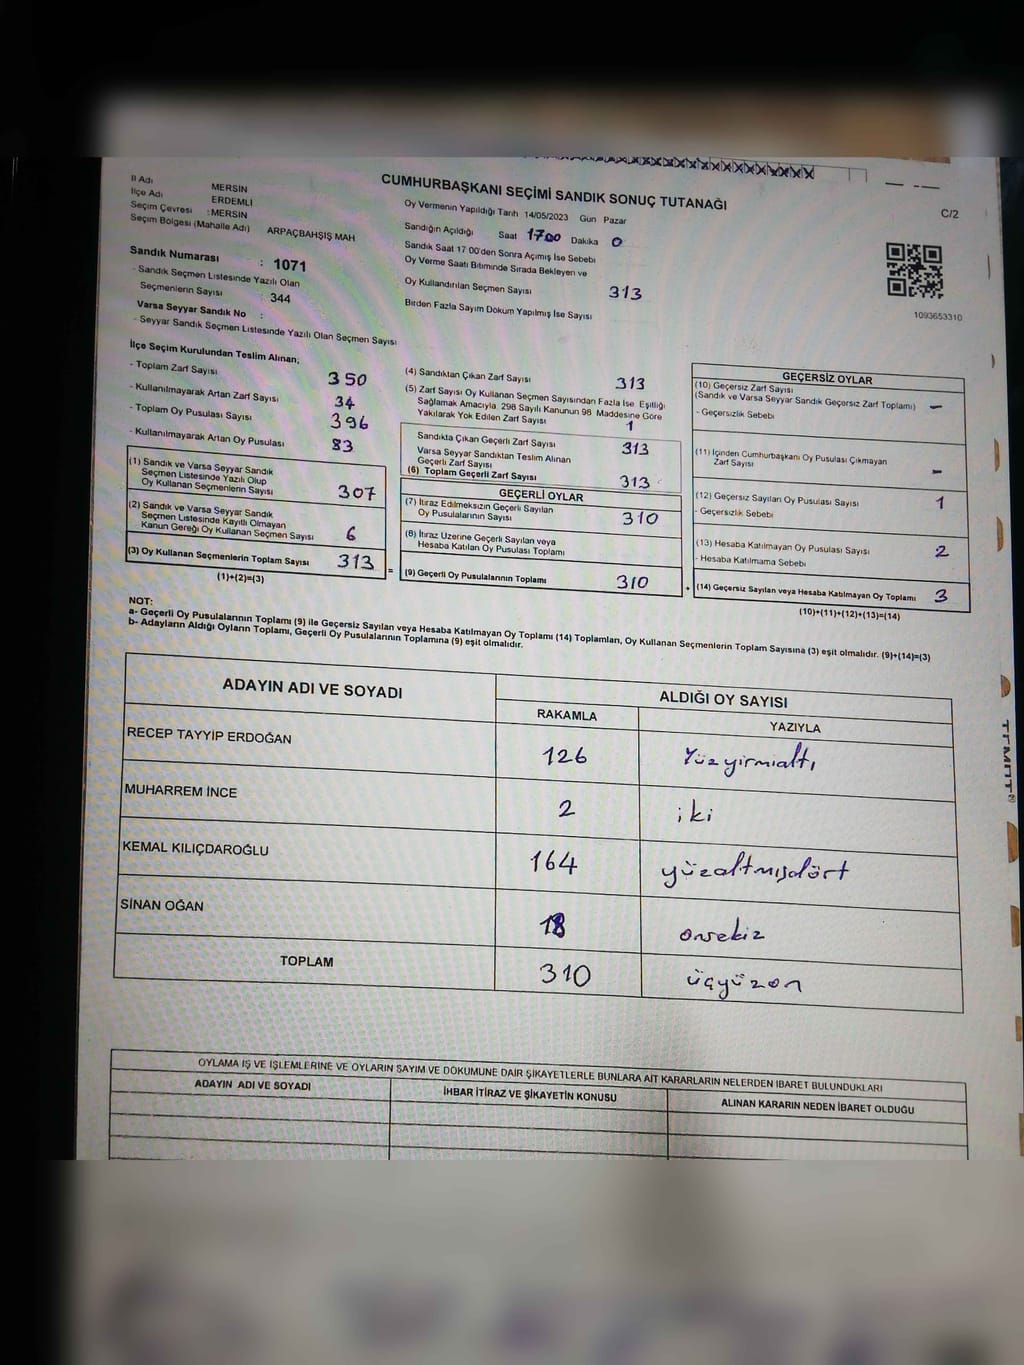 CUMHURBAŞKANI SEÇİMİ SANDIK SONUÇ TUTANAĞI
C/2
İl Adı MERSİN
İlçe Adı ERDEMLİ
Seçim Çevresi : MERSİN
Seçim Bölgesi (Mahalle Adı) ARPAÇBAHŞİŞ MAH
Sandık Numarası : 1071
- Sandık Seçmen Listesinde Yazılı Olan
Seçmenlerin Sayısı : 344
Varsa Seyyar Sandık No :
- Seyyar Sandık Seçmen Listesinde Yazılı Olan Seçmen Sayısı
Oy Vermenin Yapıldığı Tarih 14/05/2023 Gün Pazar
Sandığın Açıldığı Saat 1700 Dakika 0
Sandık Saat 17 00'den Sonra Açımış İse Sebebi
Oy Verme Saati Bitiminde Sırada Bekleyen ve
Oy Kullandırılan Seçmen Sayısı 313
Birden Fazla Sayım Döküm Yapılmış İse Sayısı
1093653310
İlçe Seçim Kurulundan Teslim Alınan;
- Toplam Zarf Sayısı 350
- Kullanılmayarak Artan Zarf Sayısı 34
- Toplam Oy Pusulası Sayısı 396
- Kullanılmayarak Artan Oy Pusulası 83
(1) Sandık ve Varsa Seyyar Sandık
Seçmen Listesinde Yazılı Olup
Oy Kullanan Seçmenlerin Sayısı 307
(2) Sandık ve Varsa Seyyar Sandık
Seçmen Listesinde Kayıtlı Olmayan
Kanun Gereği Oy Kullanan Seçmen Sayısı 6
(3) Oy Kullanan Seçmenlerin Toplam Sayısı 313
(1)+(2)=(3)
(4) Sandıktan Çıkan Zarf Sayısı 313
(5) Zarf Sayısı Oy Kullanan Seçmen Sayısından Fazla İse Eşitliği
Sağlamak Amacıyla 298 Sayılı Kanunun 98 Maddesine Göre
Yakılarak Yok Edilen Zarf Sayısı 1
Sandıkta Çıkan Geçerli Zarf Sayısı 313
Varsa Seyyar Sandıktan Teslim Alınan
Geçerli Zarf Sayısı
(6) Toplam Geçerli Zarf Sayısı 313
GEÇERLİ OYLAR
(7) İtiraz Edilmeksizin Geçerli Sayılan
Oy Pusulalarının Sayısı 310
(8) İtiraz Üzerine Geçerli Sayılan veya
Hesaba Katılan Oy Pusulası Toplamı
= (9) Geçerli Oy Pusulalarının Toplamı 310
GEÇERSİZ OYLAR
(10) Geçersiz Zarf Sayısı
(Sandık ve Varsa Seyyar Sandık Geçersiz Zarf Toplamı) -
- Geçersizlik Sebebi
(11) İçinden Cumhurbaşkanı Oy Pusulası Çıkmayan
Zarf Sayısı -
(12) Geçersiz Sayılan Oy Pusulası Sayısı 1
- Geçersizlik Sebebi
(13) Hesaba Katılmayan Oy Pusulası Sayısı 2
- Hesaba Katılmama Sebebi
+ (14) Geçersiz Sayılan veya Hesaba Katılmayan Oy Toplamı 3
(10)+(11)+(12)+(13)=(14)
NOT:
a- Geçerli Oy Pusulalarının Toplamı (9) ile Geçersiz Sayılan veya Hesaba Katılmayan Oy Toplamı (14) Toplamları, Oy Kullanan Seçmenlerin Toplam Sayısına (3) eşit olmalıdır. (9)+(14)=(3)
b- Adayların Aldığı Oyların Toplamı, Geçerli Oy Pusulalarının Toplamına (9) eşit olmalıdır.
ADAYIN ADI VE SOYADI ALDIĞI OY SAYISI
RAKAMLA YAZIYLA
RECEP TAYYİP ERDOĞAN 126 Yüzyirmialtı
MUHARREM İNCE 2 iki
KEMAL KILIÇDAROĞLU 164 yüzaltmışdört
SİNAN OĞAN 18 onsekiz
TOPLAM 310 üçyüzon
OYLAMA İŞ VE İŞLEMLERİNE VE OYLARIN SAYIM VE DÖKÜMÜNE DAİR ŞİKAYETLERLE BUNLARA AİT KARARLARIN NELERDEN İBARET BULUNDUKLARI
ADAYIN ADI VE SOYADI İHBAR İTİRAZ VE ŞİKAYETİN KONUSU ALINAN KARARIN NEDEN İBARET OLDUĞU